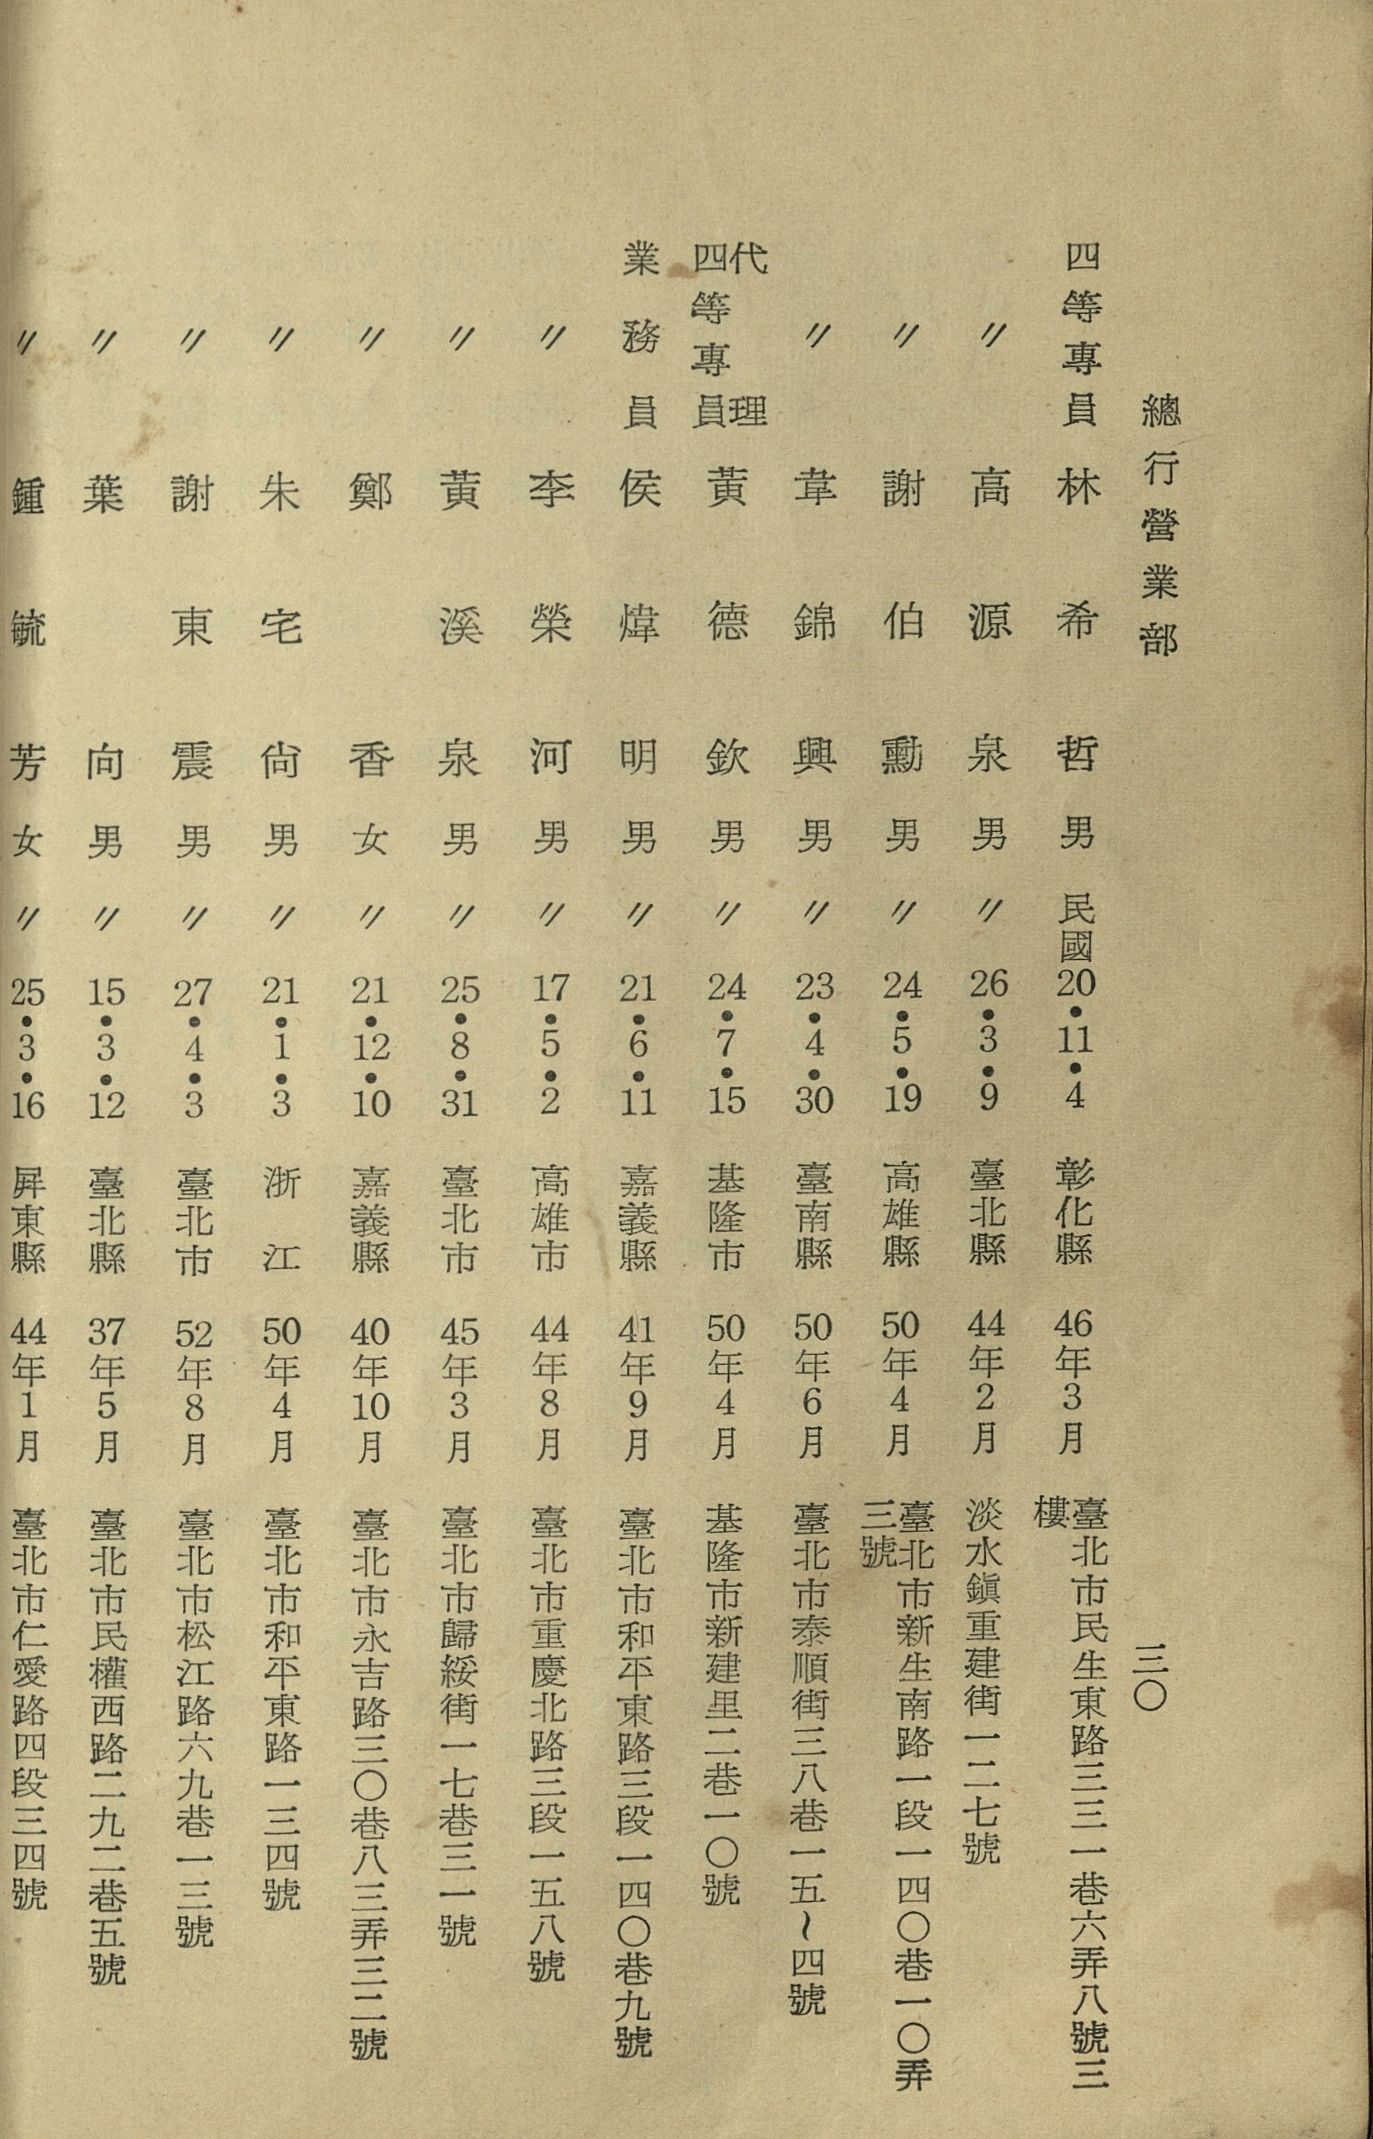 總行營業部
三〇
四等專員 林希哲 男 民國20•11•4 彰化縣 46年3月 臺北市民生東路三三一巷六弄八號三樓
〃 高源泉 男 〃 26•3•9 臺北縣 44年2月 淡水鎭重建街一二七號
〃 謝伯勳 男 〃 24•5•19 高雄縣 50年4月 臺北市新生南路一段一四〇巷一〇弄三號
〃 韋錦興 男 〃 23•4•30 臺南縣 50年6月 臺北市泰順街三八巷一五~四號
代理四等專員 黃德欽 男 〃 24•7•15 基隆市 50年4月 基隆市新建里二巷一〇號
業務員 侯煒明 男 〃 21•6•11 嘉義縣 41年9月 臺北市和平東路三段一四〇巷九號
〃 李榮河 男 〃 17•5•2 高雄市 44年8月 臺北市重慶北路三段一五八號
〃 黃溪泉 男 〃 25•8•31 臺北市 45年3月 臺北市歸綏街一七巷三一號
〃 鄭香 女 〃 21•12•10 嘉義縣 40年10月 臺北市永吉路三〇巷八三弄三二號
〃 朱宅尙 男 〃 21•1•3 浙江 50年4月 臺北市和平東路一三四號
〃 謝東震 男 〃 27•4•3 臺北市 52年8月 臺北市松江路六九巷一三號
〃 葉向 男 〃 15•3•12 臺北縣 37年5月 臺北市民權西路二九二巷五號
〃 鍾毓芳 女 〃 25•3•16 屛東縣 44年1月 臺北市仁愛路四段三四號